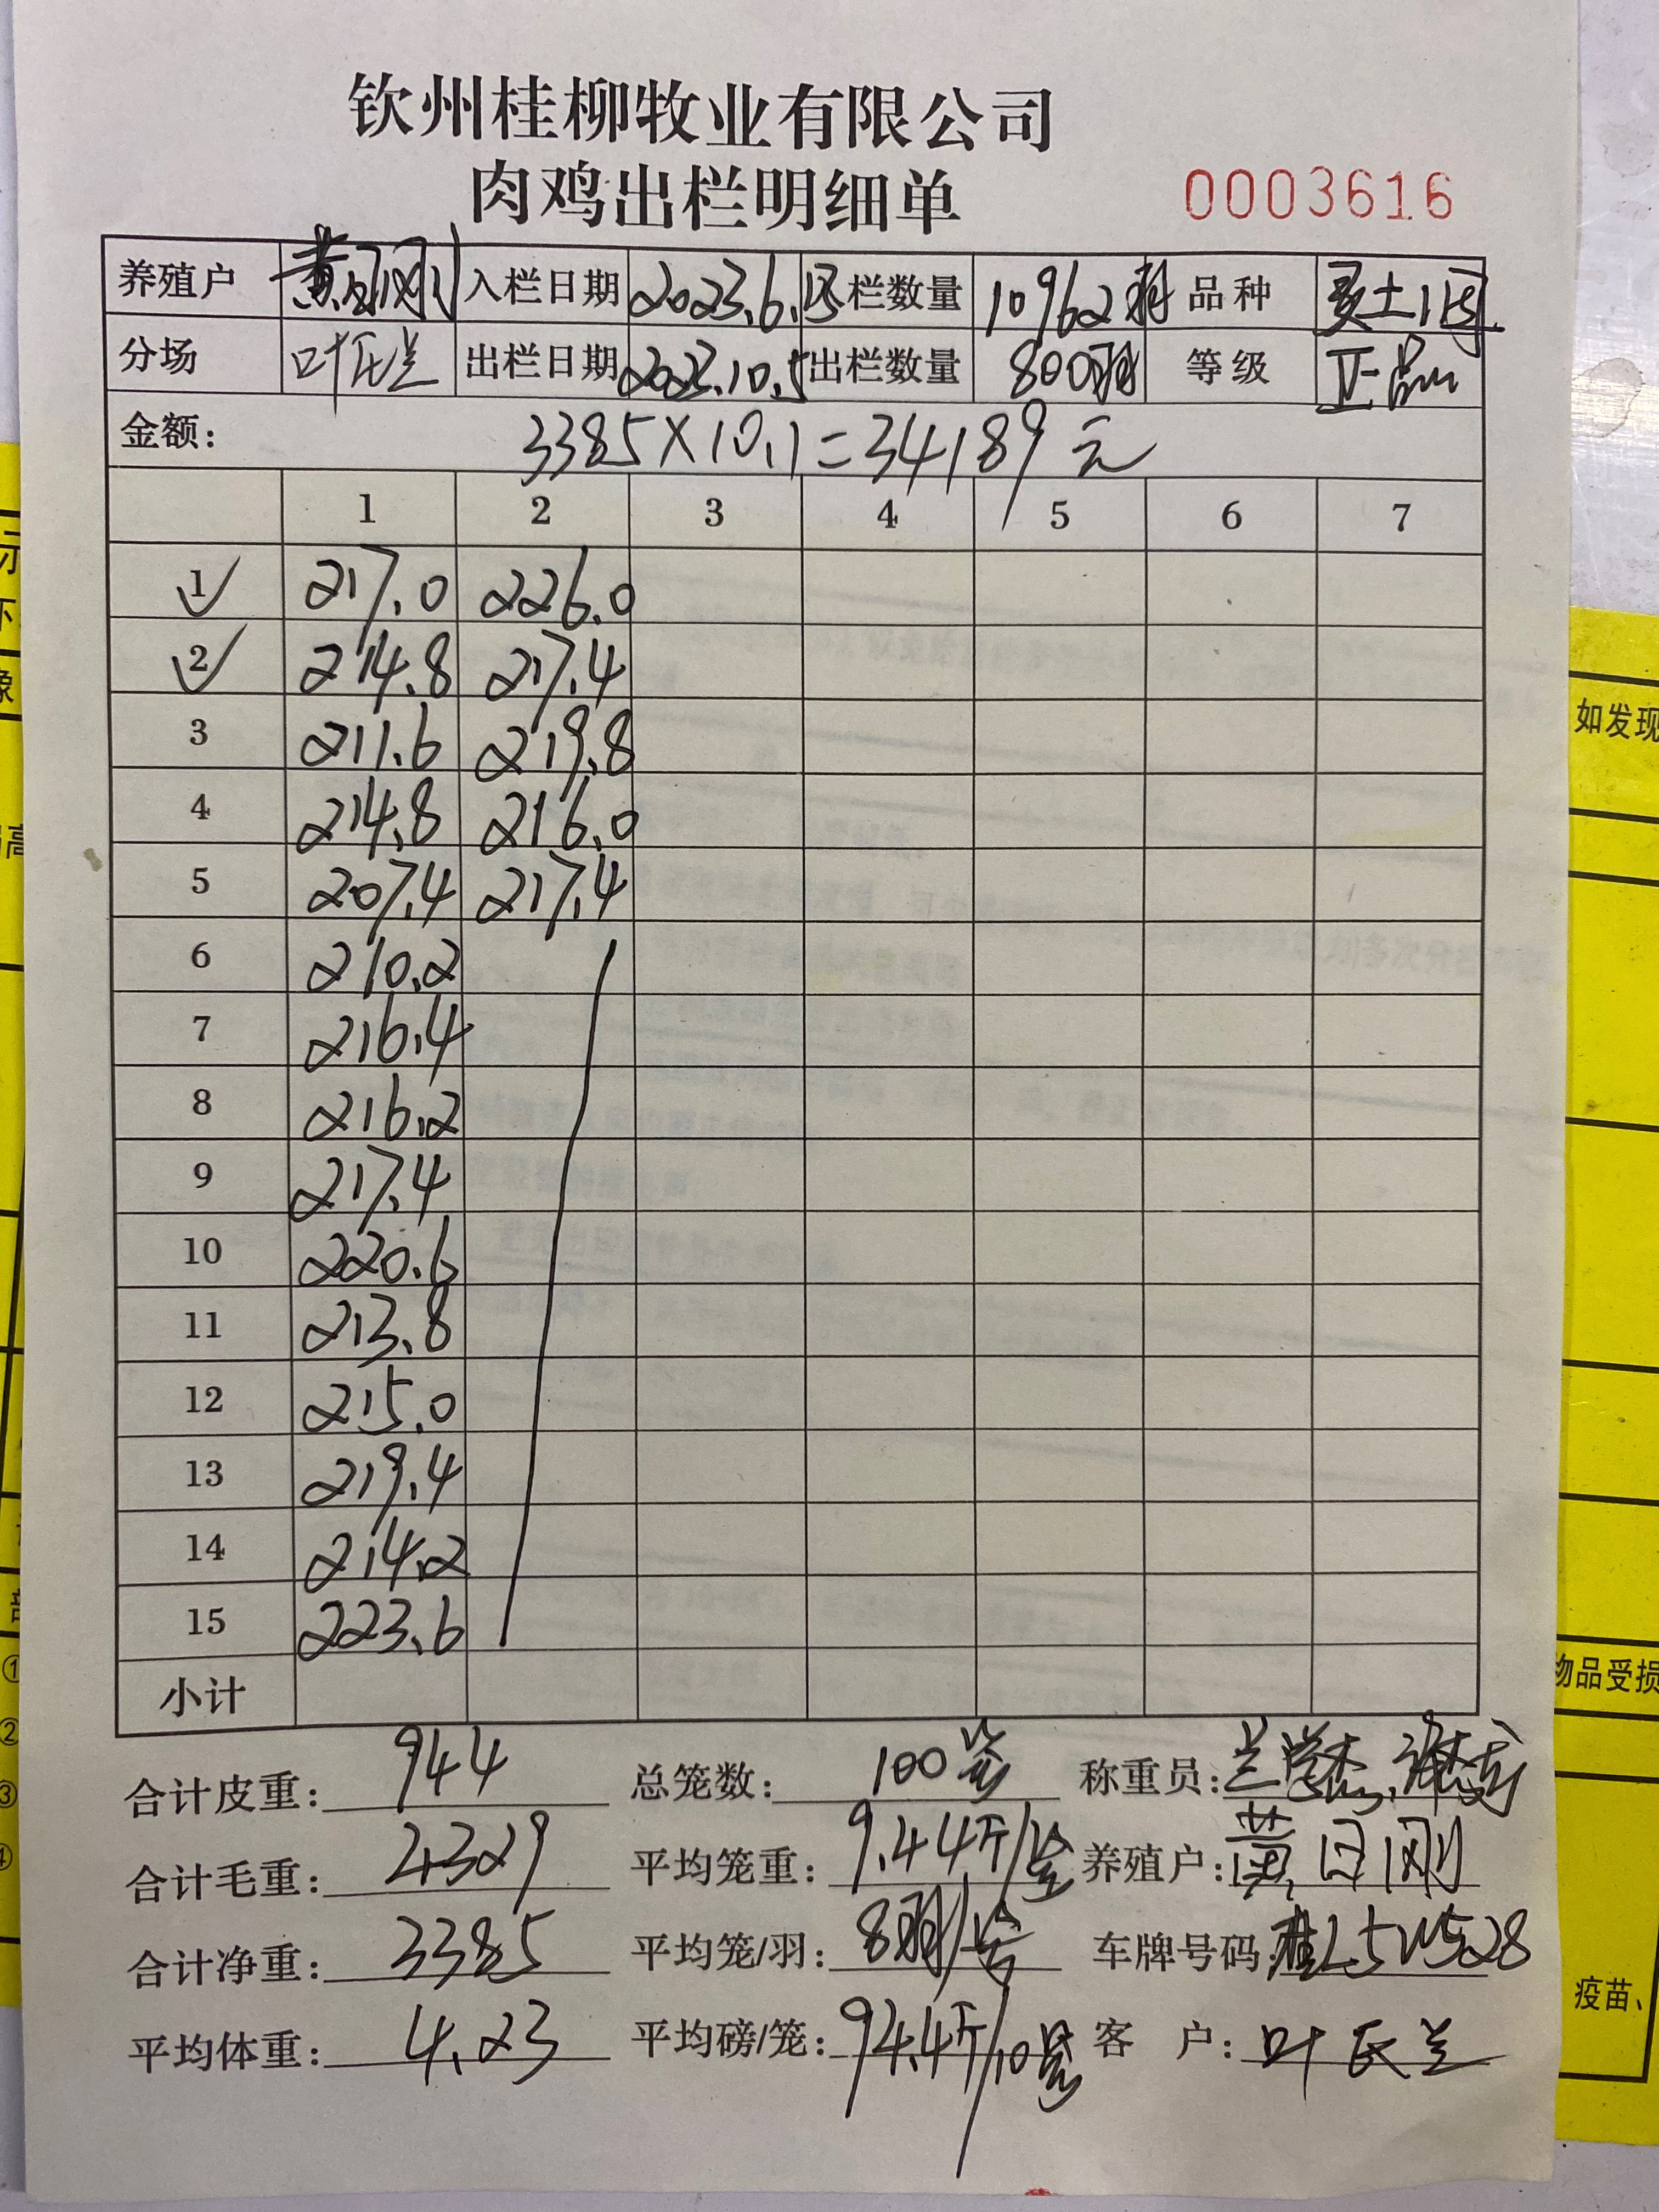 钦州桂柳牧业有限公司
肉鸡出栏明细单 0003616
养殖户 黄日刚 入栏日期 2023.6.13 栏数量 10962羽 品种 灵土1号
分场 叶氏兰 出栏日期 2023.10.5 出栏数量 800羽 等级 正品
金额: 3385×10.1=34189元
1 2 3 4 5 6 7
1 217.0 226.0
2 214.8 217.4
3 211.6 219.8
4 214.8 216.0
5 207.4 217.4
6 210.2
7 216.4
8 216.2
9 217.4
10 220.6
11 213.8
12 215.0
13 219.4
14 214.2
15 223.6
小计
合计皮重: 944 总笼数: 100笼 称重员:
合计毛重: 4329 平均笼重: 9.44斤/笼 养殖户: 黄日刚
合计净重: 3385 平均笼/羽: 8羽/笼 车牌号码:
平均体重: 4.23 平均磅/笼: 94.4斤/10笼 客 户: 叶氏兰
如发现
物品受损
疫苗、